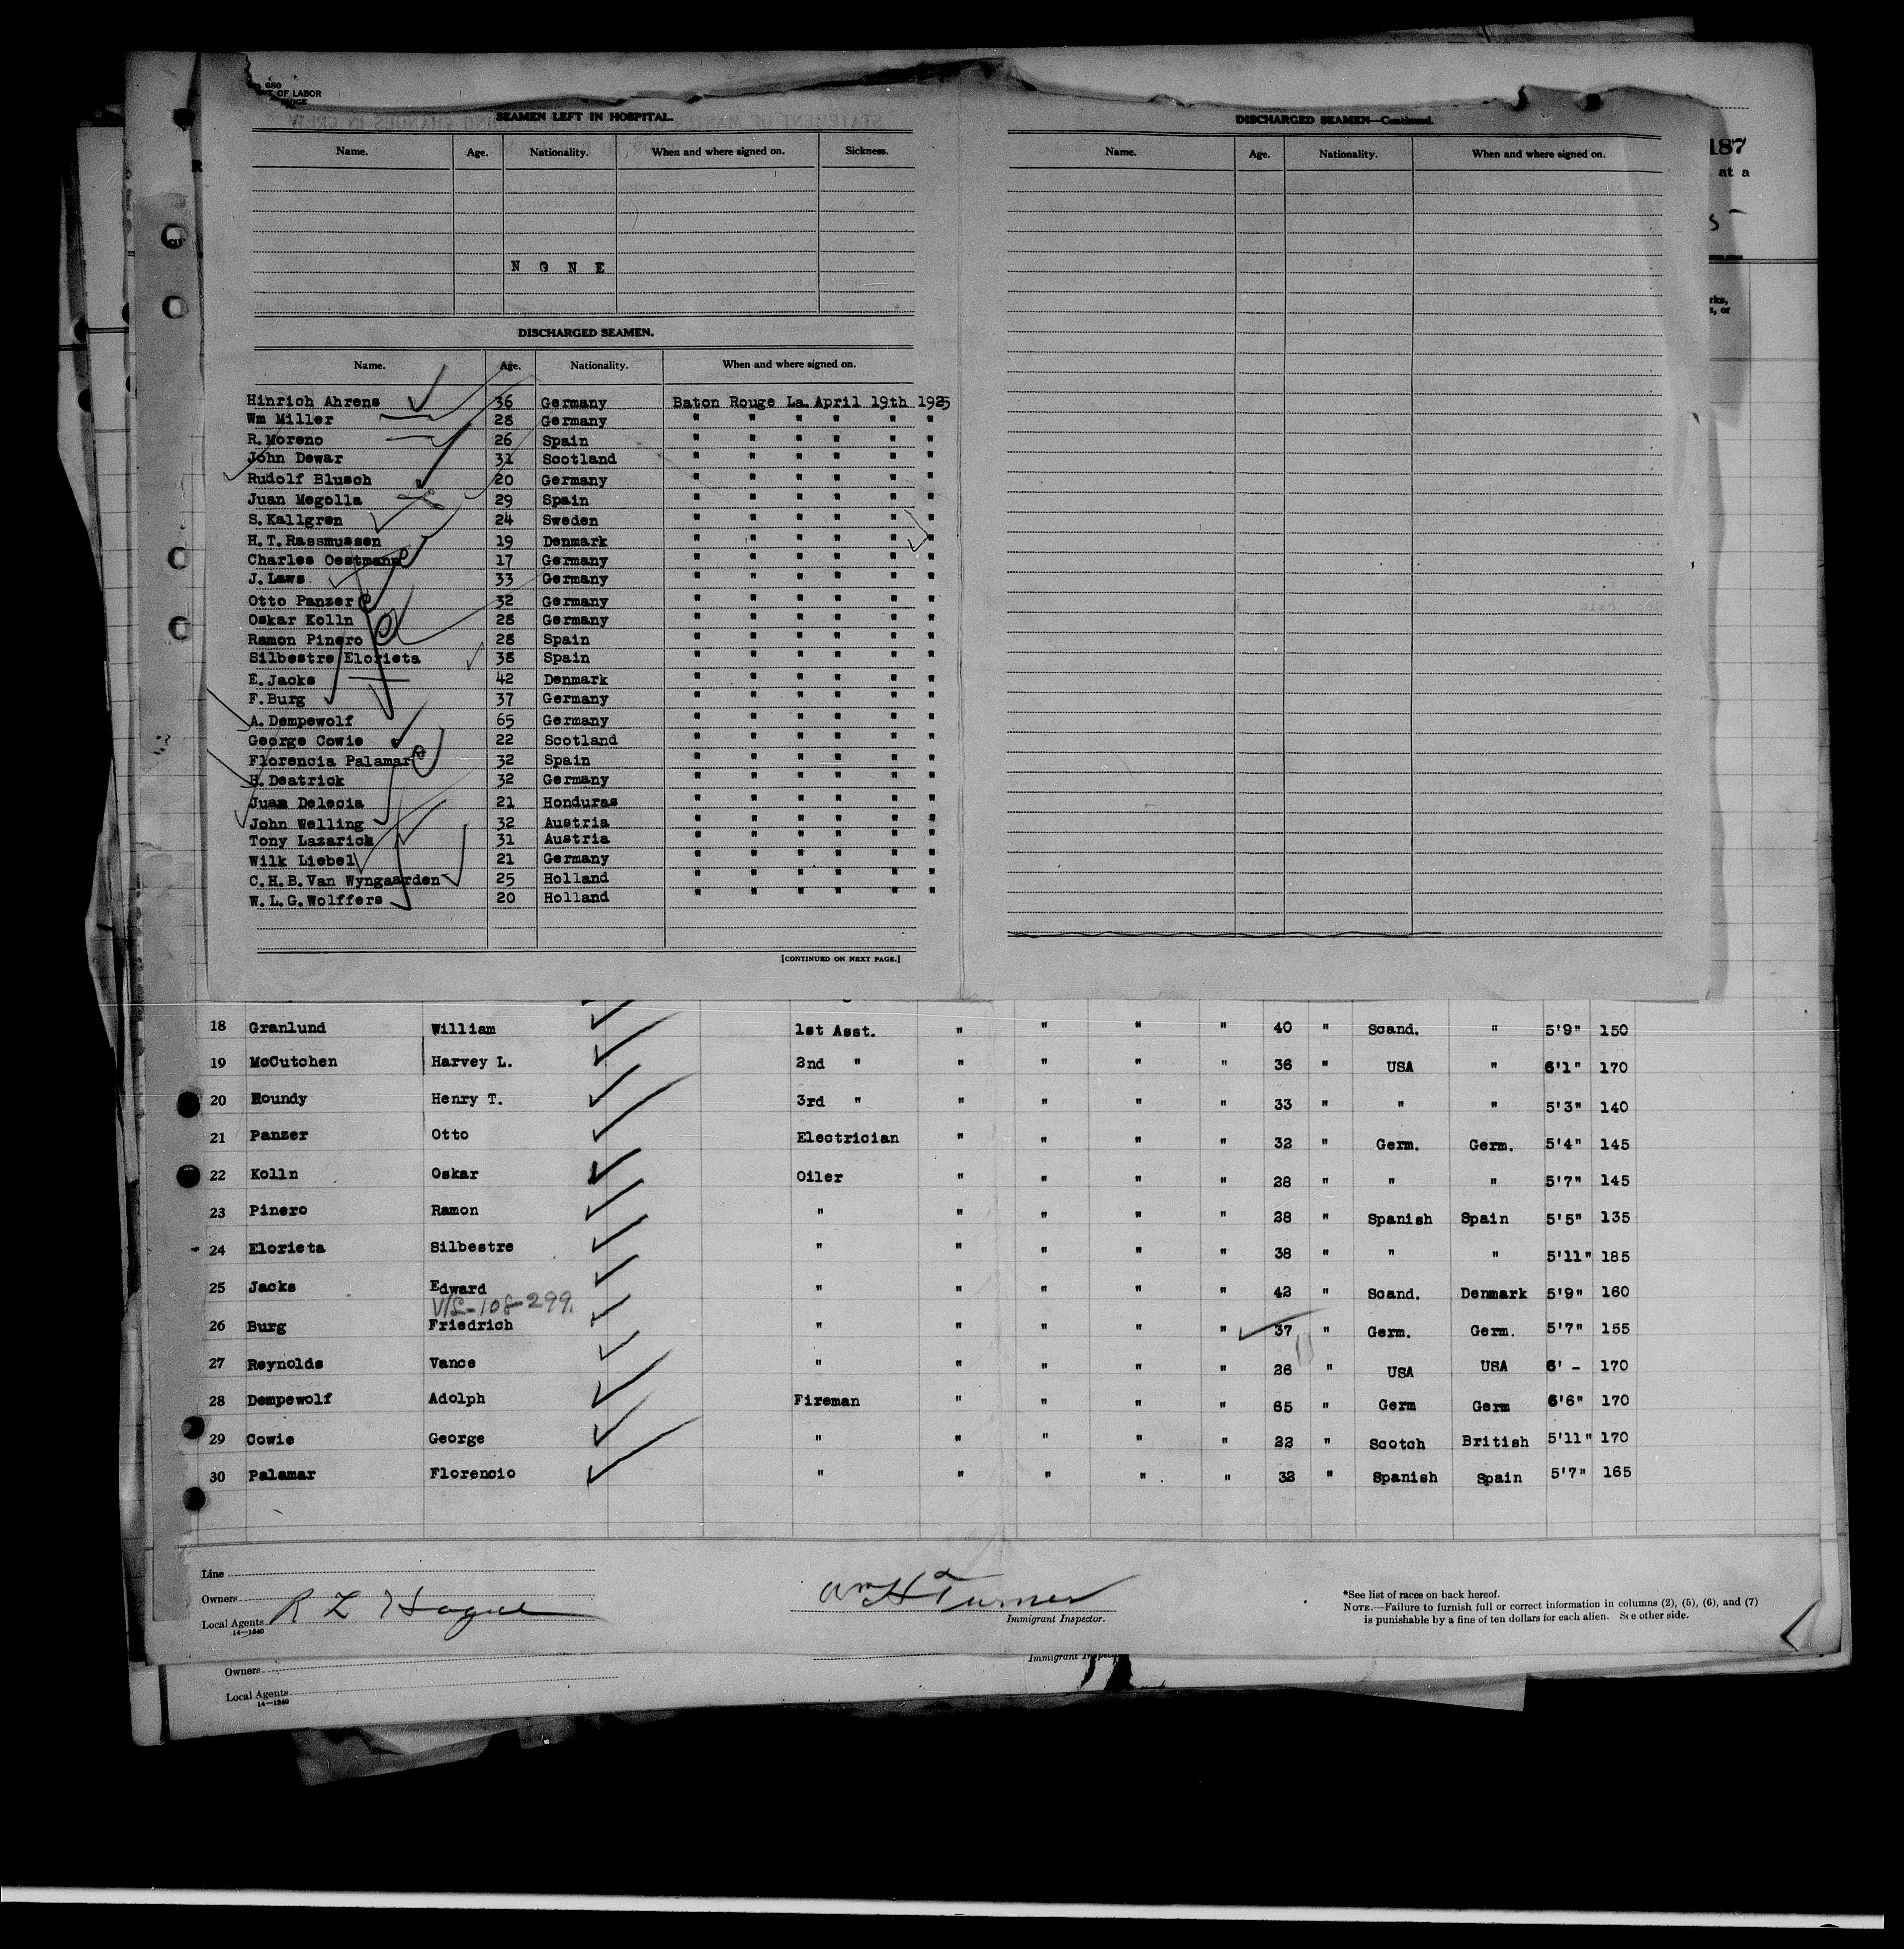 680
OF LABOR
SEAMEN LEFT IN HOSPITAL.
Name. Age. Nationality. When and where signed on. Sickness.
N O N E
DISCHARGED SEAMEN.
Name. Age. Nationality. When and where signed on.
Hinrich Ahrens 36 Germany Baton Rouge La. April 19th 1925
Wm Miller 28 Germany " " " " " "
R. Moreno 26 Spain " " " " " "
John Dewar 31 Scotland " " " " " "
Rudolf Blusch 20 Germany " " " " " "
Juan Megolla 29 Spain " " " " " "
S. Kallgren 24 Sweden " " " " " "
H. T. Rassmussen 19 Denmark " " " " " "
Charles Oestmann 17 Germany " " " " " "
J. Laws 33 Germany " " " " " "
Otto Panzer 32 Germany " " " " " "
Oskar Kolln 28 Germany " " " " " "
Ramon Pinero 28 Spain " " " " " "
Silbestre Elorieta 38 Spain " " " " " "
E. Jacks 42 Denmark " " " " " "
F. Burg 37 Germany " " " " " "
A. Dempewolf 65 Germany " " " " " "
George Cowie 22 Scotland " " " " " "
Florencia Palamar 32 Spain " " " " " "
H. Deatrick 32 Germany " " " " " "
Juan Delecia 21 Honduras " " " " " "
John Welling 32 Austria " " " " " "
Tony Lazarick 31 Austria " " " " " "
Wilk Liebel 21 Germany " " " " " "
C. H. B. Van Wyngaarden 25 Holland " " " " " "
W. L. G. Wolffers 20 Holland " " " " " "
[CONTINUED ON NEXT PAGE.]
DISCHARGED SEAMEN—Continued.
Name. Age. Nationality. When and where signed on.
187
at a
18 Granlund William 1st Asst. " " " " 40 " Scand. " 5'9" 150
19 McCutchen Harvey L. 2nd " " " " " 36 " USA " 6'1" 170
20 Houndy Henry T. 3rd " " " " " 33 " " " 5'3" 140
21 Panzer Otto Electrician " " " " 32 " Germ. Germ. 5'4" 145
22 Kolln Oskar Oiler " " " " 28 " " " 5'7" 145
23 Pinero Ramon " " " " " 28 " Spanish Spain 5'5" 135
24 Elorieta Silbestre " " " " " 38 " " " 5'11" 185
25 Jacks Edward " " " " " 42 " Scand. Denmark 5'9" 160
V/L-108-299.
26 Burg Friedrich " " " " " 37 " Germ. Germ. 5'7" 155
27 Reynolds Vance " " " " " 26 " USA USA 6' - 170
28 Dempewolf Adolph Fireman " " " " 65 " Germ Germ 6'6" 170
29 Cowie George " " " " " 22 " Scotch British 5'11" 170
30 Palamar Florencio " " " " " 32 " Spanish Spain 5'7" 165
Line
Owners
Local Agents R L Hague
14—1240
Wm H Turner
Immigrant Inspector.
*See list of races on back hereof.
NOTE.—Failure to furnish full or correct information in columns (2), (5), (6), and (7)
is punishable by a fine of ten dollars for each alien. See other side.
Owners
Local Agents
14—1240
Immigrant